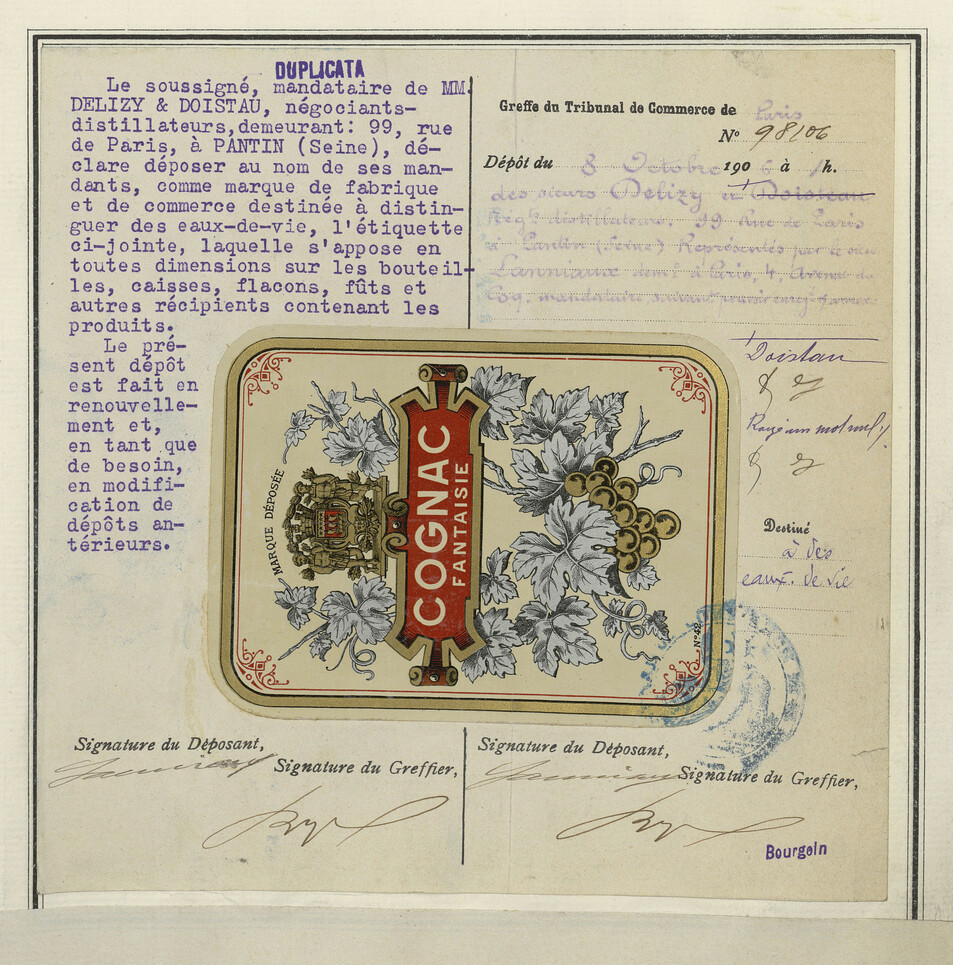 DUPLICATA
Le soussigné, mandataire de MM.
DELIZY & DOISTAU, négociants-
distillateurs,demeurant: 99, rue
de Paris, à PANTIN (Seine), dé-
clare déposer au nom de ses man-
dants, comme marque de fabrique
et de commerce destinée à distin-
guer des eaux-de-vie, l'étiquette
ci-jointe, laquelle s'appose en
toutes dimensions sur les bouteil-
les, caisses, flacons, fûts et
autres récipients contenant les
produits.
Le pré-
sent dépôt
est fait en
renouvelle-
ment et,
en tant que
de besoin,
en modifi-
cation de
dépôts an-
térieurs.
Greffe du Tribunal de Commerce de Paris
N° 98106
Dépôt du 8 Octobre 190 à h.
des sieurs Delizy et Doistau
Négts distillateurs, 99 Rue de Paris
à Pantin (Seine) Représentés par le sieur
Lanniaux demt à Paris, 4, Avenue du
Coq, mandataire suivant pouvoir
Doistau
Rayé un mot nul
Destiné
à des
eaux-de-vie
MARQUE DÉPOSÉE
COGNAC
FANTAISIE
N° 42
Signature du Déposant,
Signature du Greffier,
Signature du Déposant,
Signature du Greffier,
Bourgoin